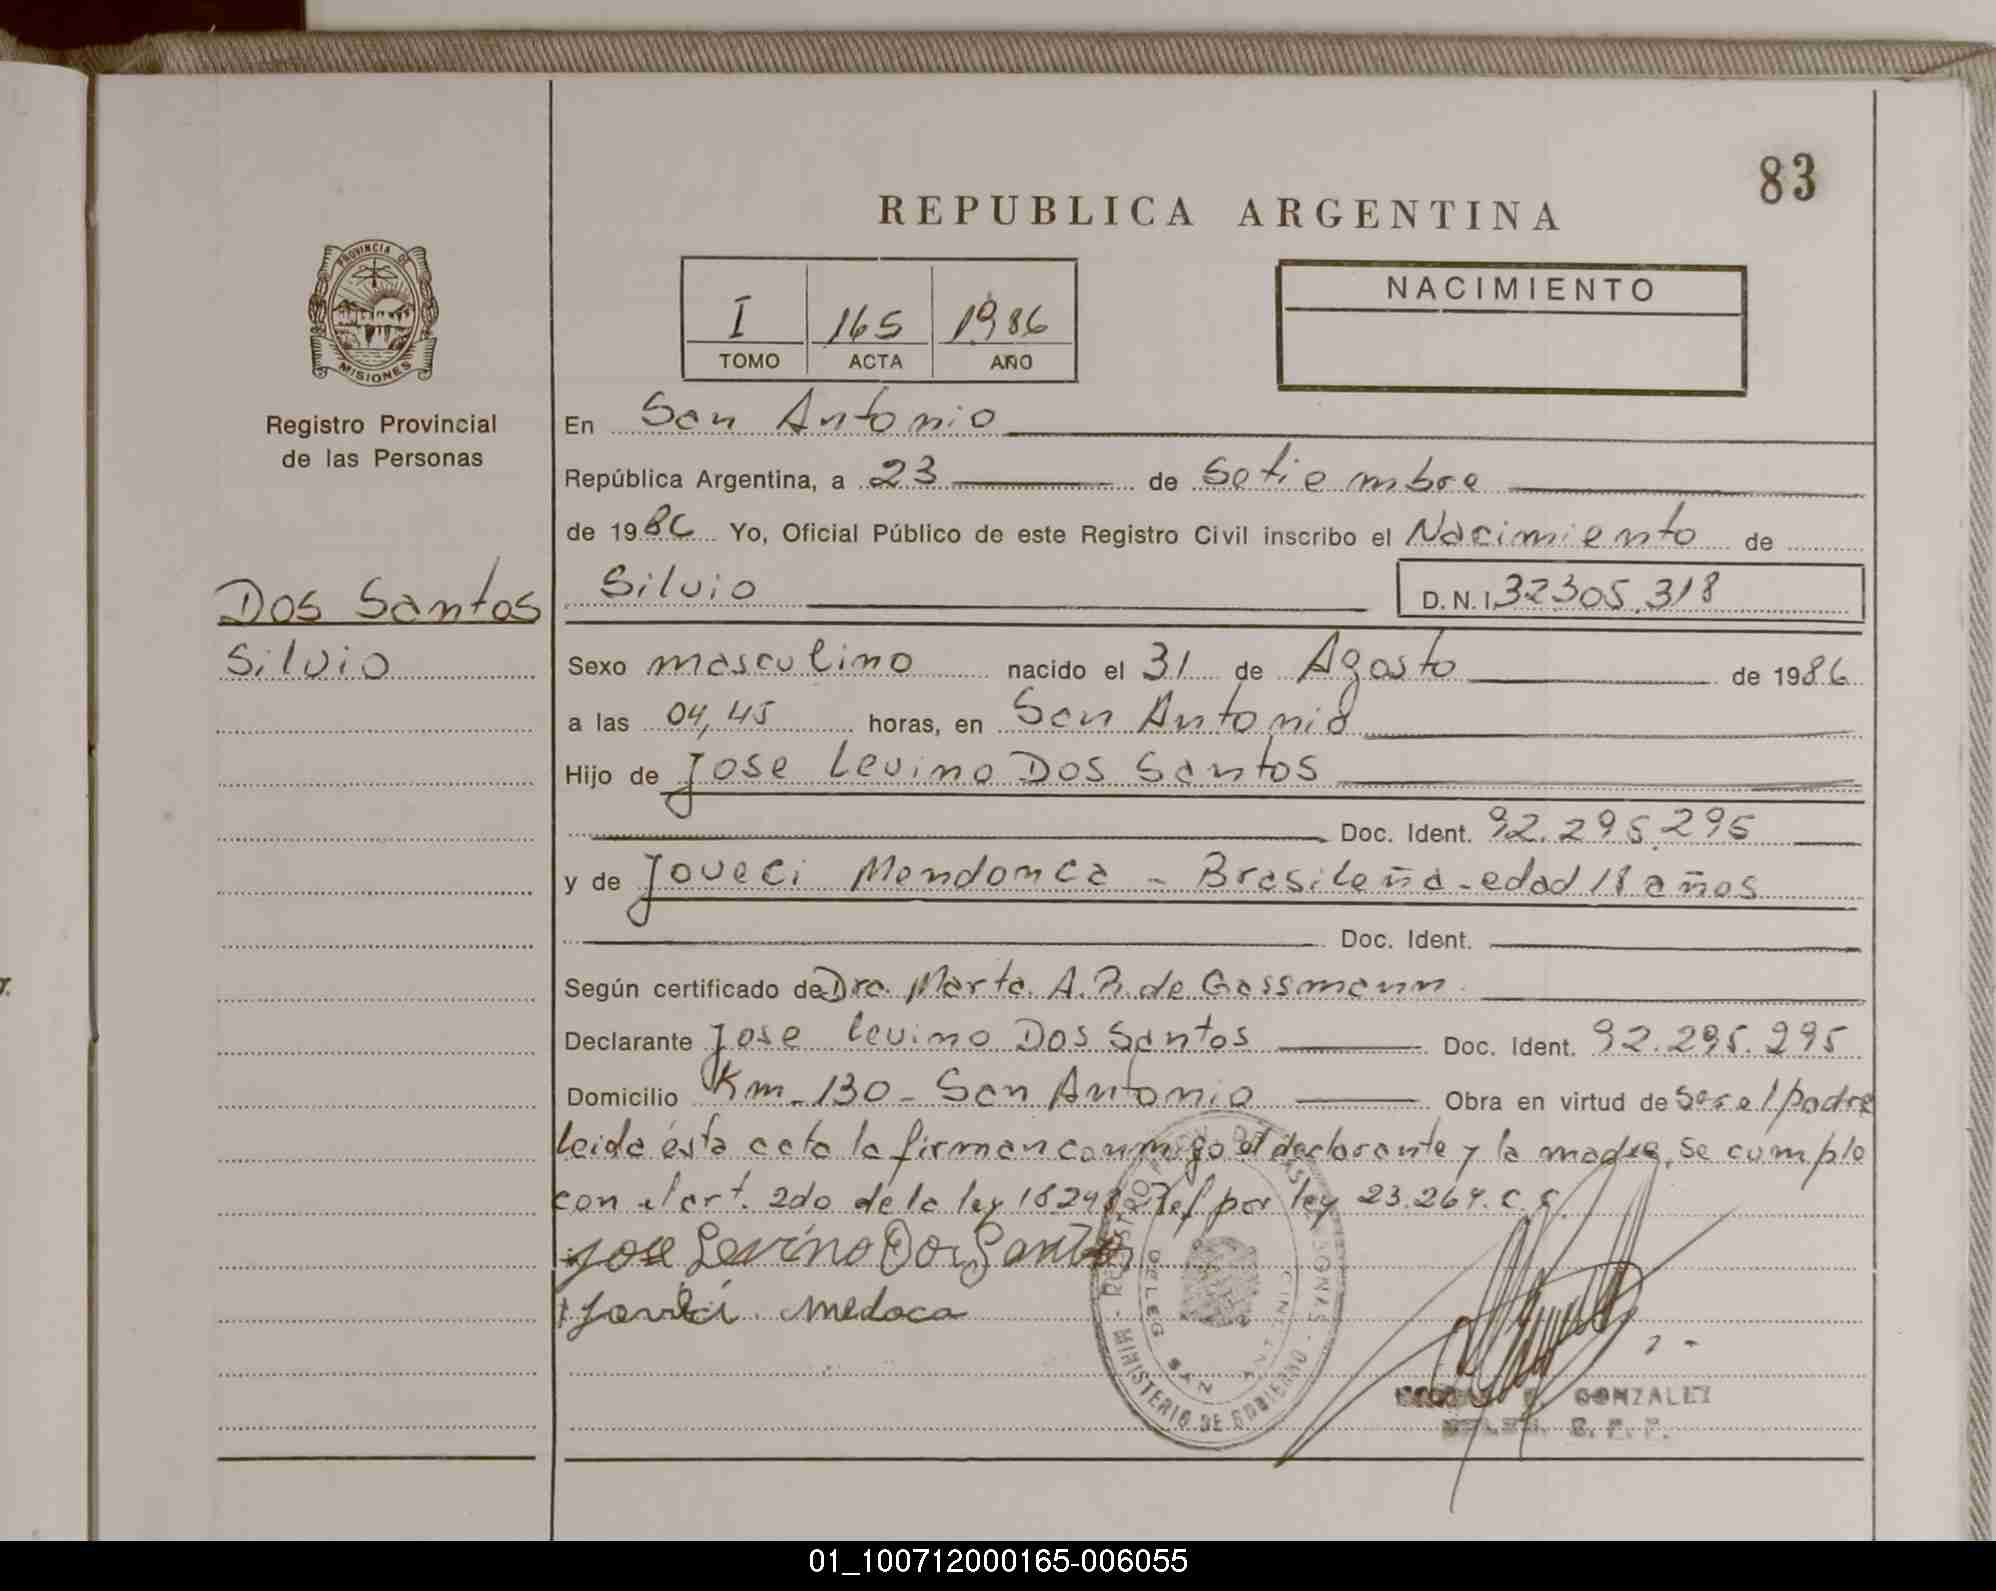 83
REPUBLICA ARGENTINA
PROVINCIA DE
MISIONES
Registro Provincial
de las Personas
I 165 1986
TOMO ACTA AÑO
NACIMIENTO
En San Antonio
República Argentina, a 23 de Setiembre
de 1986 Yo, Oficial Público de este Registro Civil inscribo el Nacimiento de
Dos Santos
Silvio
Silvio D.N.I. 32305.318
Sexo masculino nacido el 31 de Agosto de 1986
a las 04,45 horas, en San Antonio
Hijo de Jose Levino Dos Santos
Doc. Ident. 92.295.295
y de Joveci Mendonca - Brasileña - edad 18 años
Doc. Ident.
Según certificado de Dra. Marta A. R. de Gassmann
Declarante Jose Levino Dos Santos Doc. Ident. 92.295.295
Domicilio Km - 130 - San Antonio Obra en virtud de Ser el padre
leida ésta acta la firman conmigo el declarante y la madre, se cumple
con el art. 2do de la ley 18.248 Ref por ley 23.264. C. C.
Jose Levino Dos Santos
Medoca
REGISTRO PROV. DE LAS PERSONAS
MINISTERIO DE GOBIERNO
DELEG SAN ANT
GONZALEZ